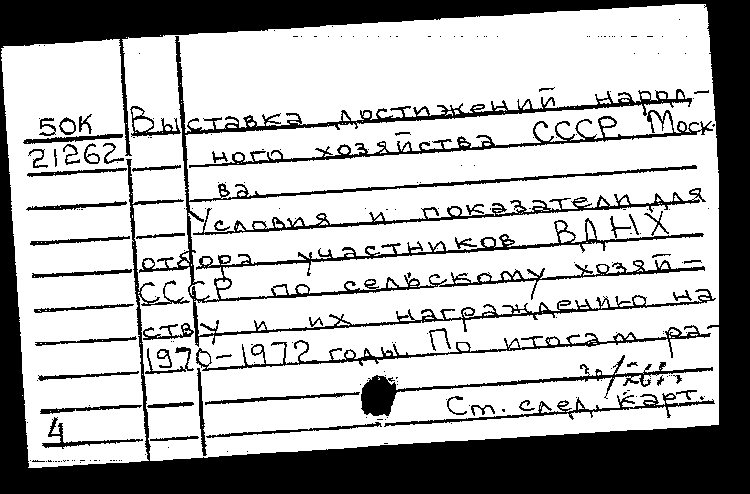 50К Выставка достижений народ-
21262 ного хозяйства СССР. Моск
ва.
Условия и показатели для
отбора участников ВДНХ
СССР по сельскому хозяй-
ству и их награждению на
1970-1972 годы. По итогам ра-
См. след. карт.
4